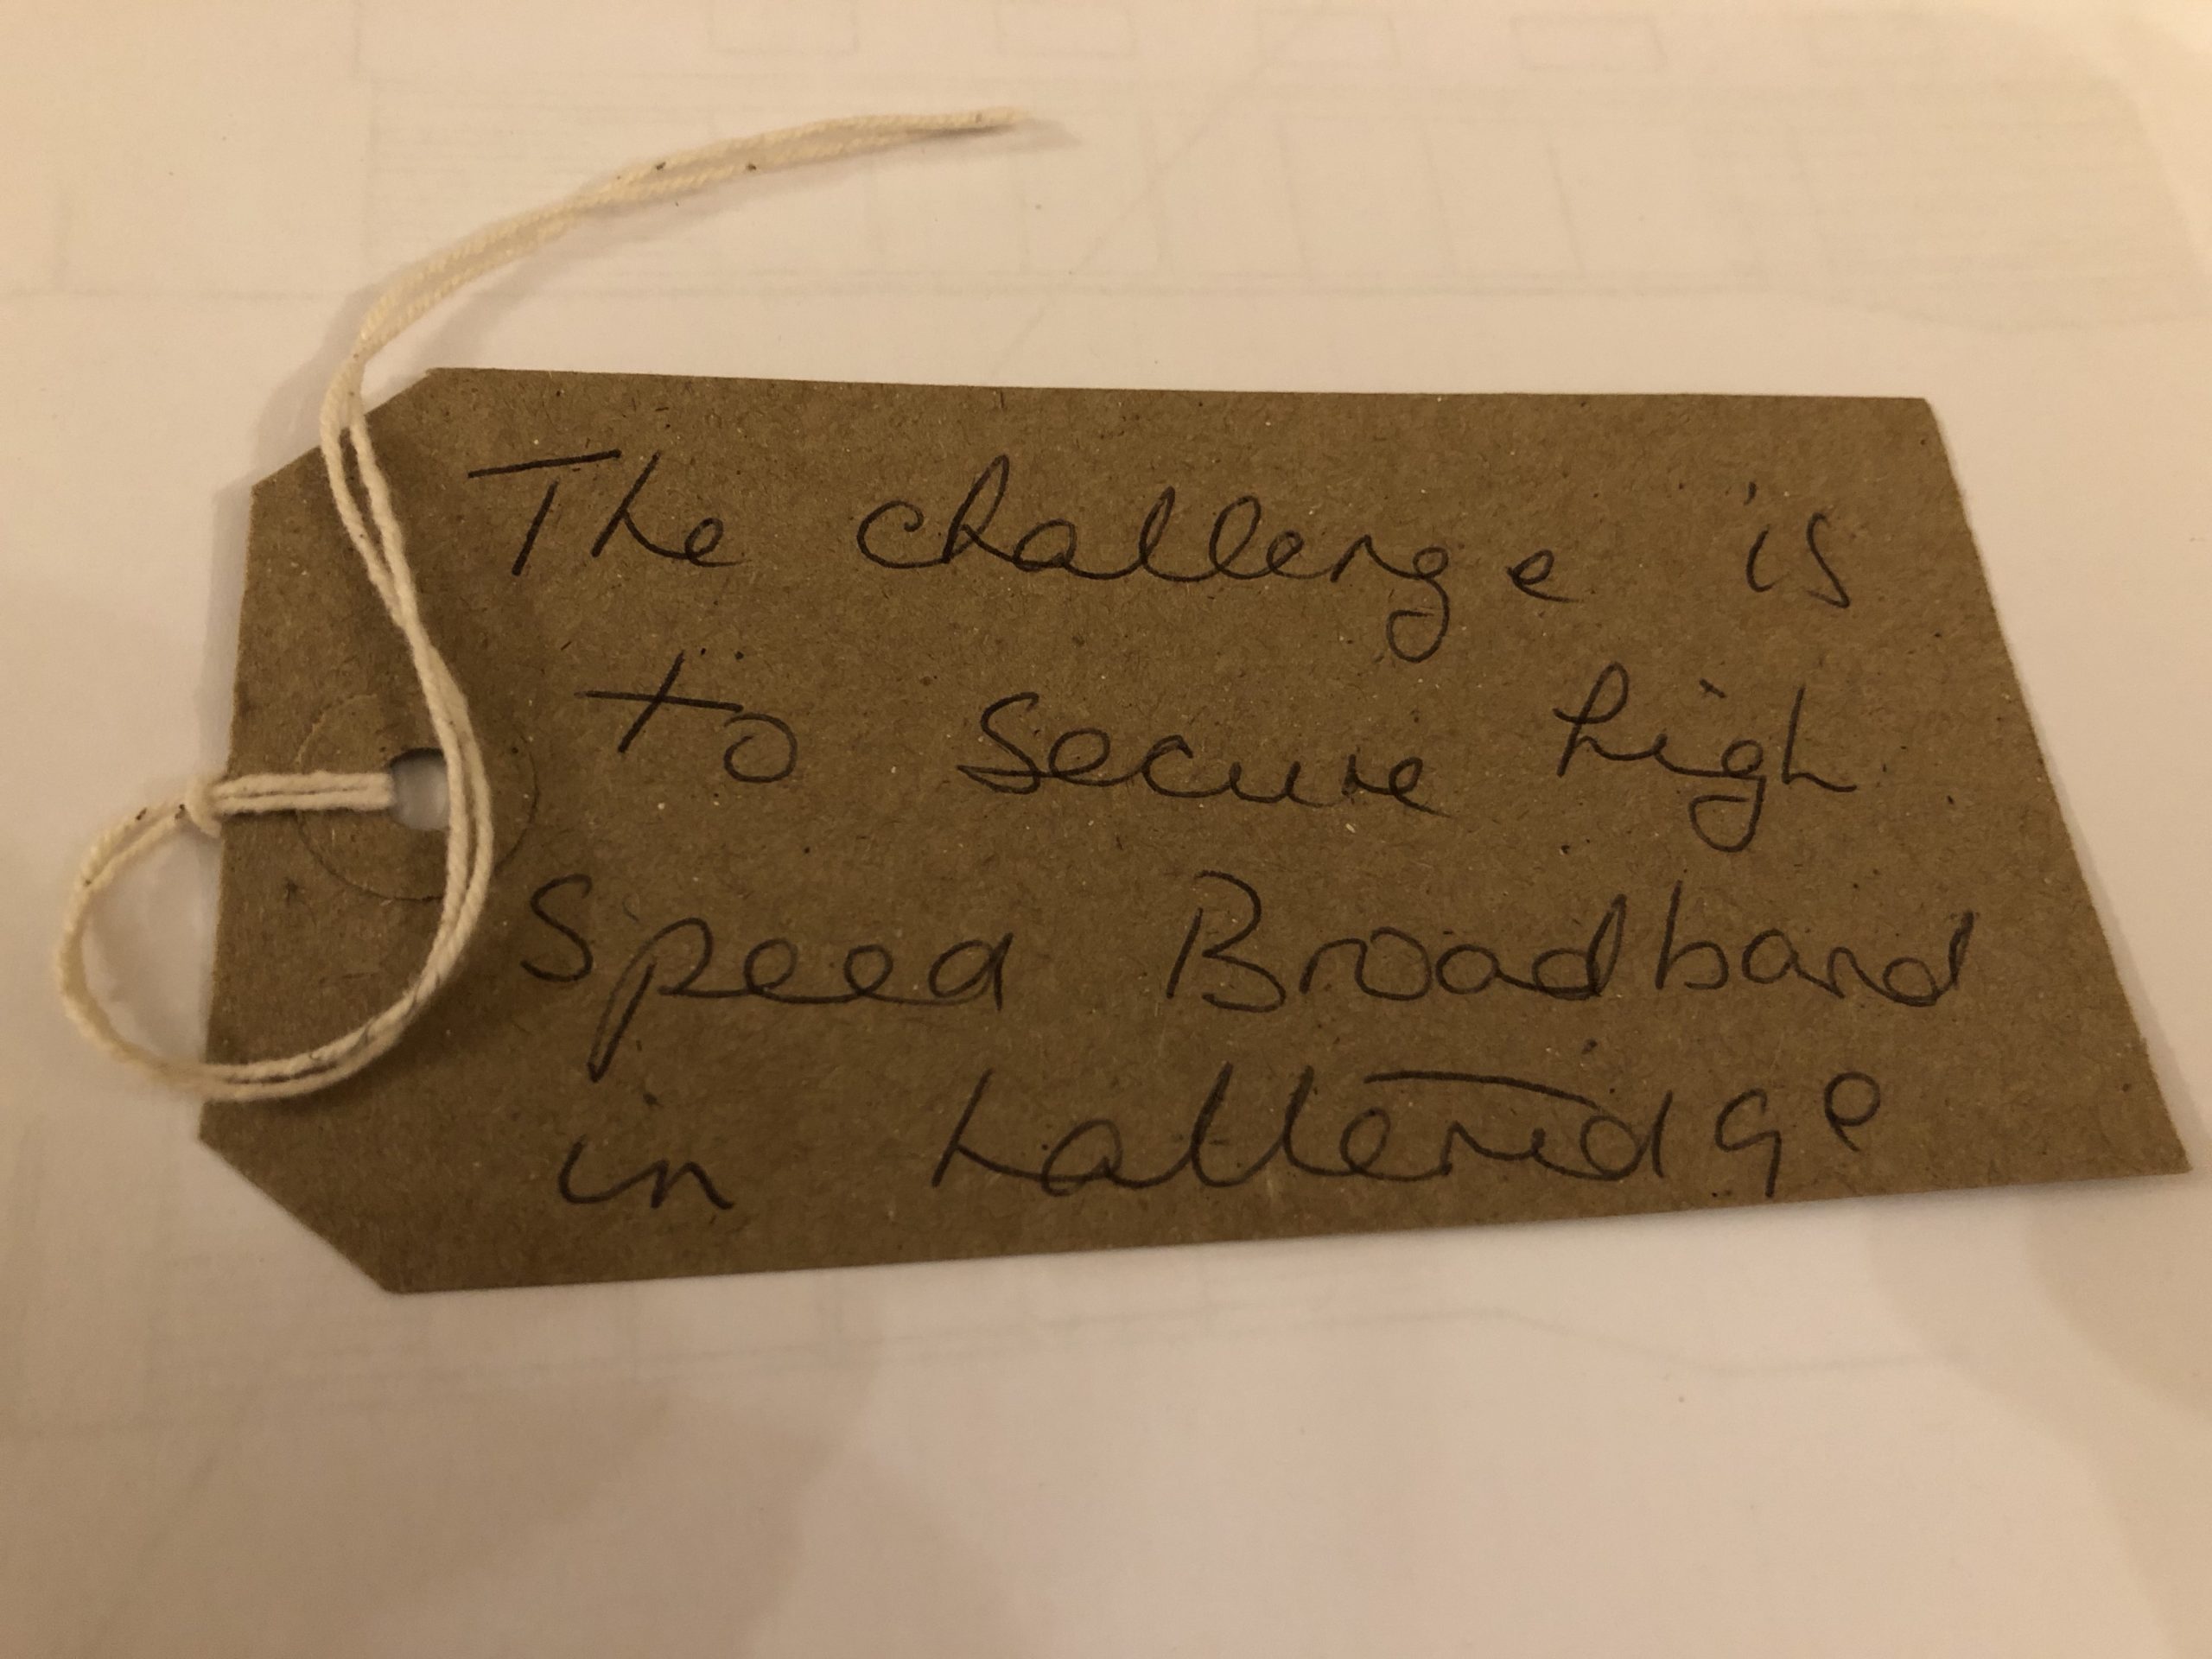 The challenge is
to secure high
Speed Broadband
in Latteridge